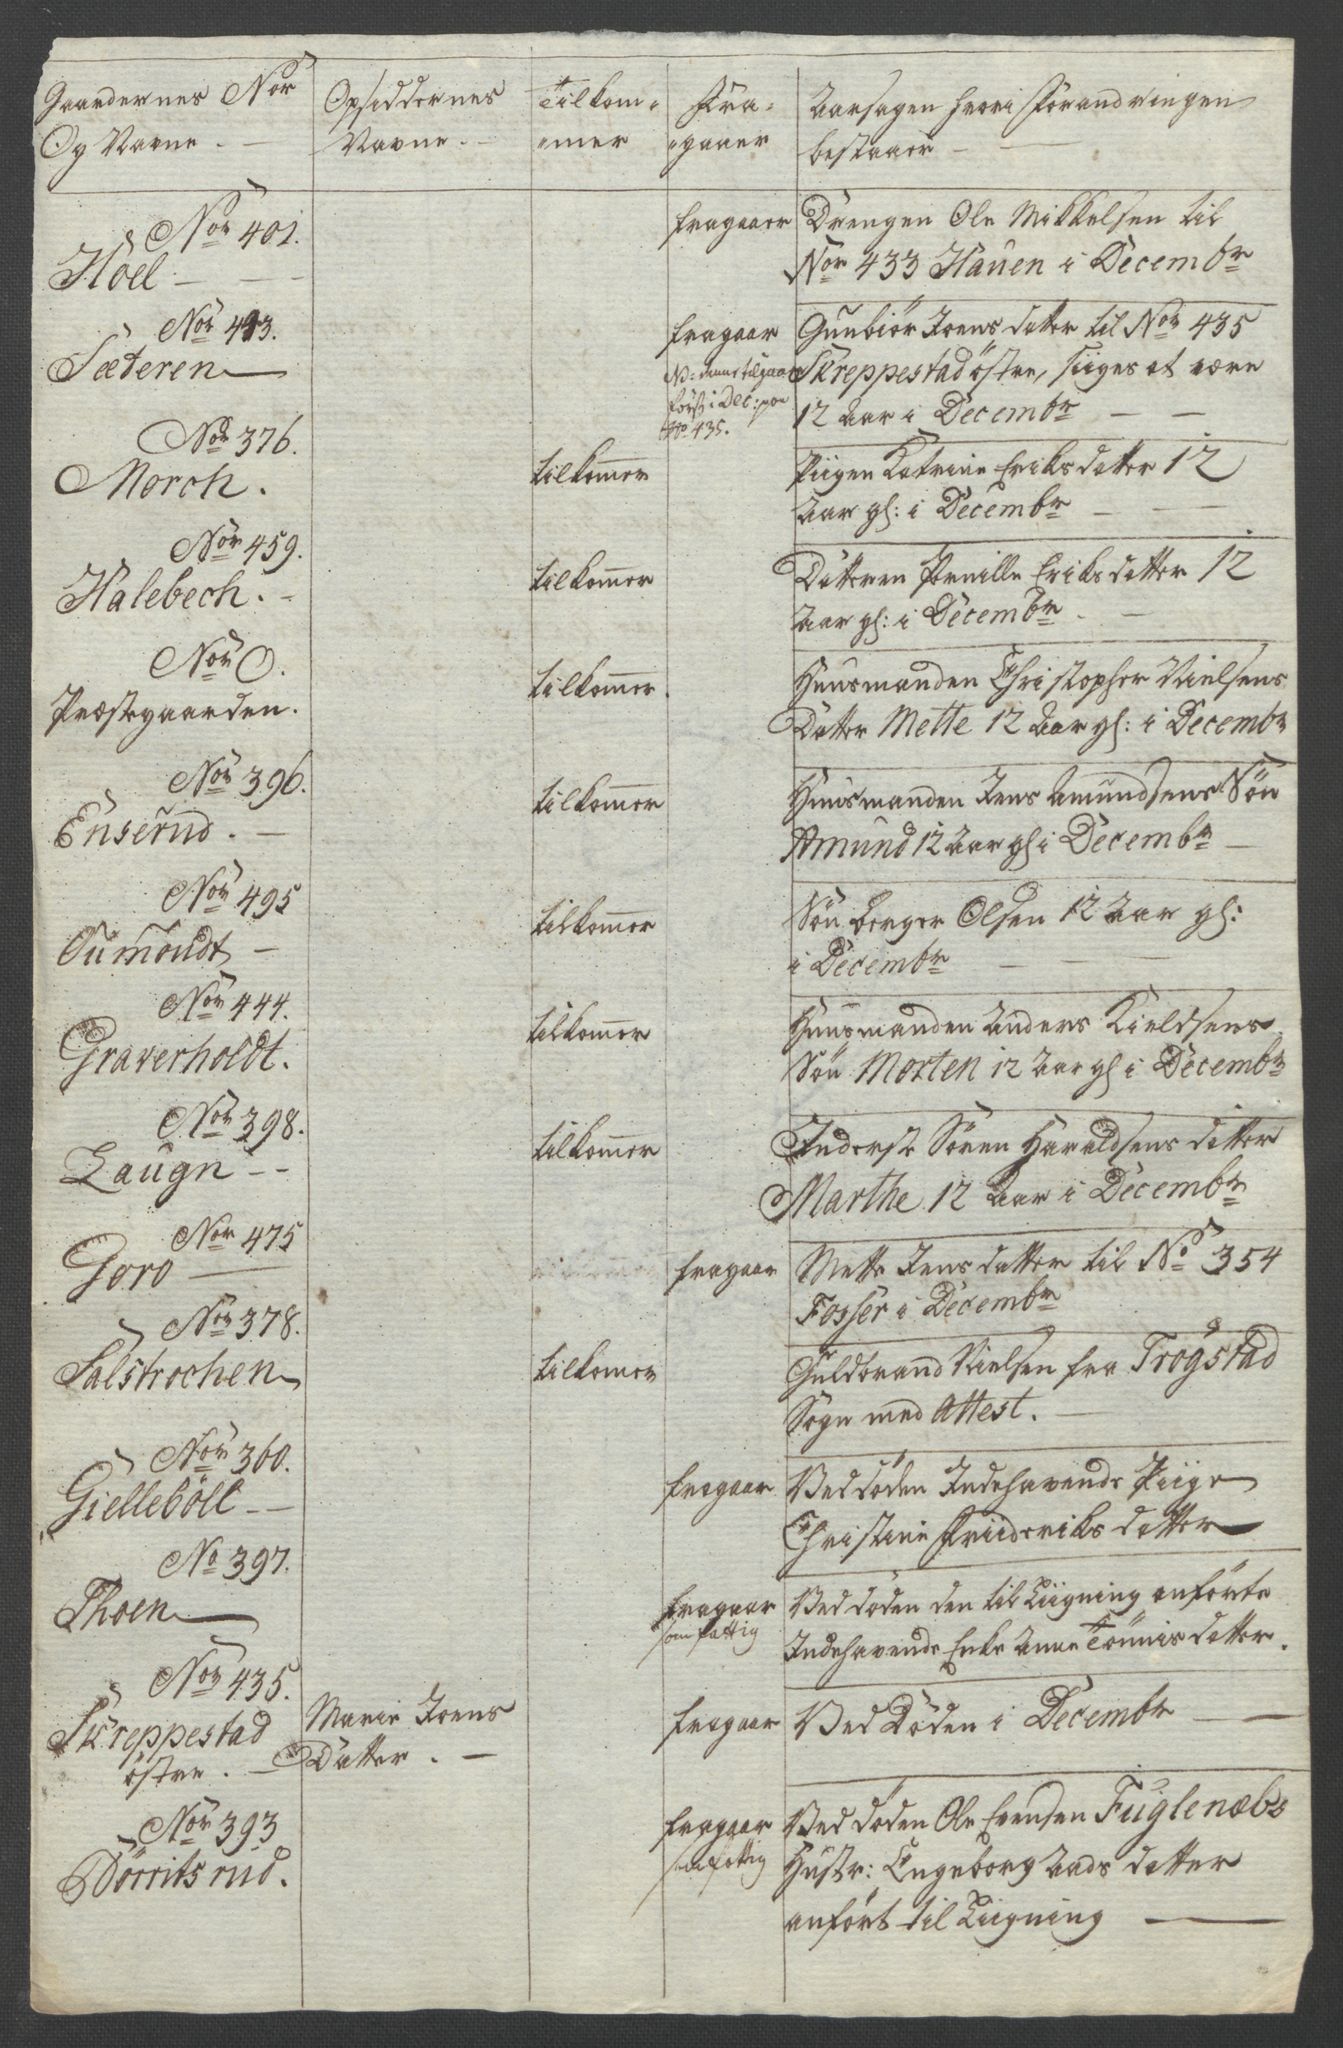 Gaardernes Nor
Og Navne.
Opsiddernes
Navne.
Tilkom-
-mer
Fra-
-gaaer
Aarsagen hvori Forandringen
bestaaer
Nor 401.
Höel
fragaaer
Drengen Ole Mikkelsen til
Nor 433 Hauen i Decembr
Nor 413.
Sæteren
fragaar
NB: denne tilgaar
först i Dec: paa
No. 435.
Gunbiör Joensdatter til Nor 435
Skreppestad östre, siiges at være
12 Aar i Decembr
Nor 376.
Morch.
tilkommer
Piigen Katrine Eriksdatter 12
Aar gl: i Decembr
Nor 459.
Halebech.
tilkommer
Datteren Pernille Eriksdatter 12
Aar gl: i Decembr.
Nor O.
Præstegaarden.
tilkommer.
Huusmanden Christopher Nielsens
Datter Mette 12 Aar gl: i Decembr
Nor 396.
Enserud.
tilkommer
Huusmanden Jens Amundsens Sön
Amund 12 Aar gl i Decembr
Nor 495
Oumoudt
tilkommer
Sön Berger Olsen 12 Aar gl:
i Decembr
Nor 444.
Graverholdt.
tilkommer
Huusmanden Anders Kieldsens
Sön Morten 12 Aar gl i Decembr
Nor 398.
Laugn
tilkommer
Inderste Sören Haraldsens datter
Marthe 12 Aar i Decembr
Nor 475
Goro
fragaar
Mette Jensdatter til No 354
Fosser i Decembr
Nor 378.
Salstrochen
tilkomer
Guldbrand Nielsen fra Trögstad
Sogn med Attest.
Nor 360.
Gielleböll
fragaar
Ved döden Indehavende Piige
Christine Friideriksdatter
No 397.
Thoen
fragaar
som fattig
Ved döden den til Liigning anförte
Indehavende Enke Anne Tönnisdatter.
Nor 435.
Skreppestad
östre.
Marie Joens
Datter.
fragaar
Ved Döden i Decembr
Nor 393
Dörritsrud.
fragaar
som fattig
Ved döden Ole Evensen Fuglenæbs
Hustr: Engeborg Aadsdatter
anfört til Liigning